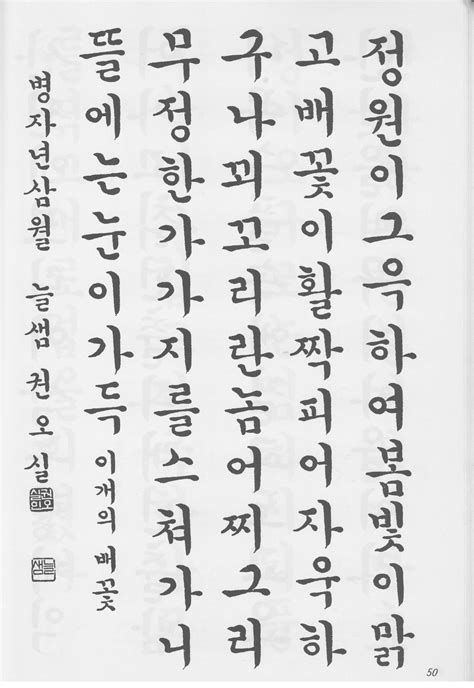 정원이그윽하여봄빛이맑
고배꽃이활짝피어자욱하
구나꾀꼬리란놈어찌그리
무정한가가지를스쳐가니
뜰에는눈이가득 이개의 배꽃
병자년삼월 늘샘 권오실
늘샘
50